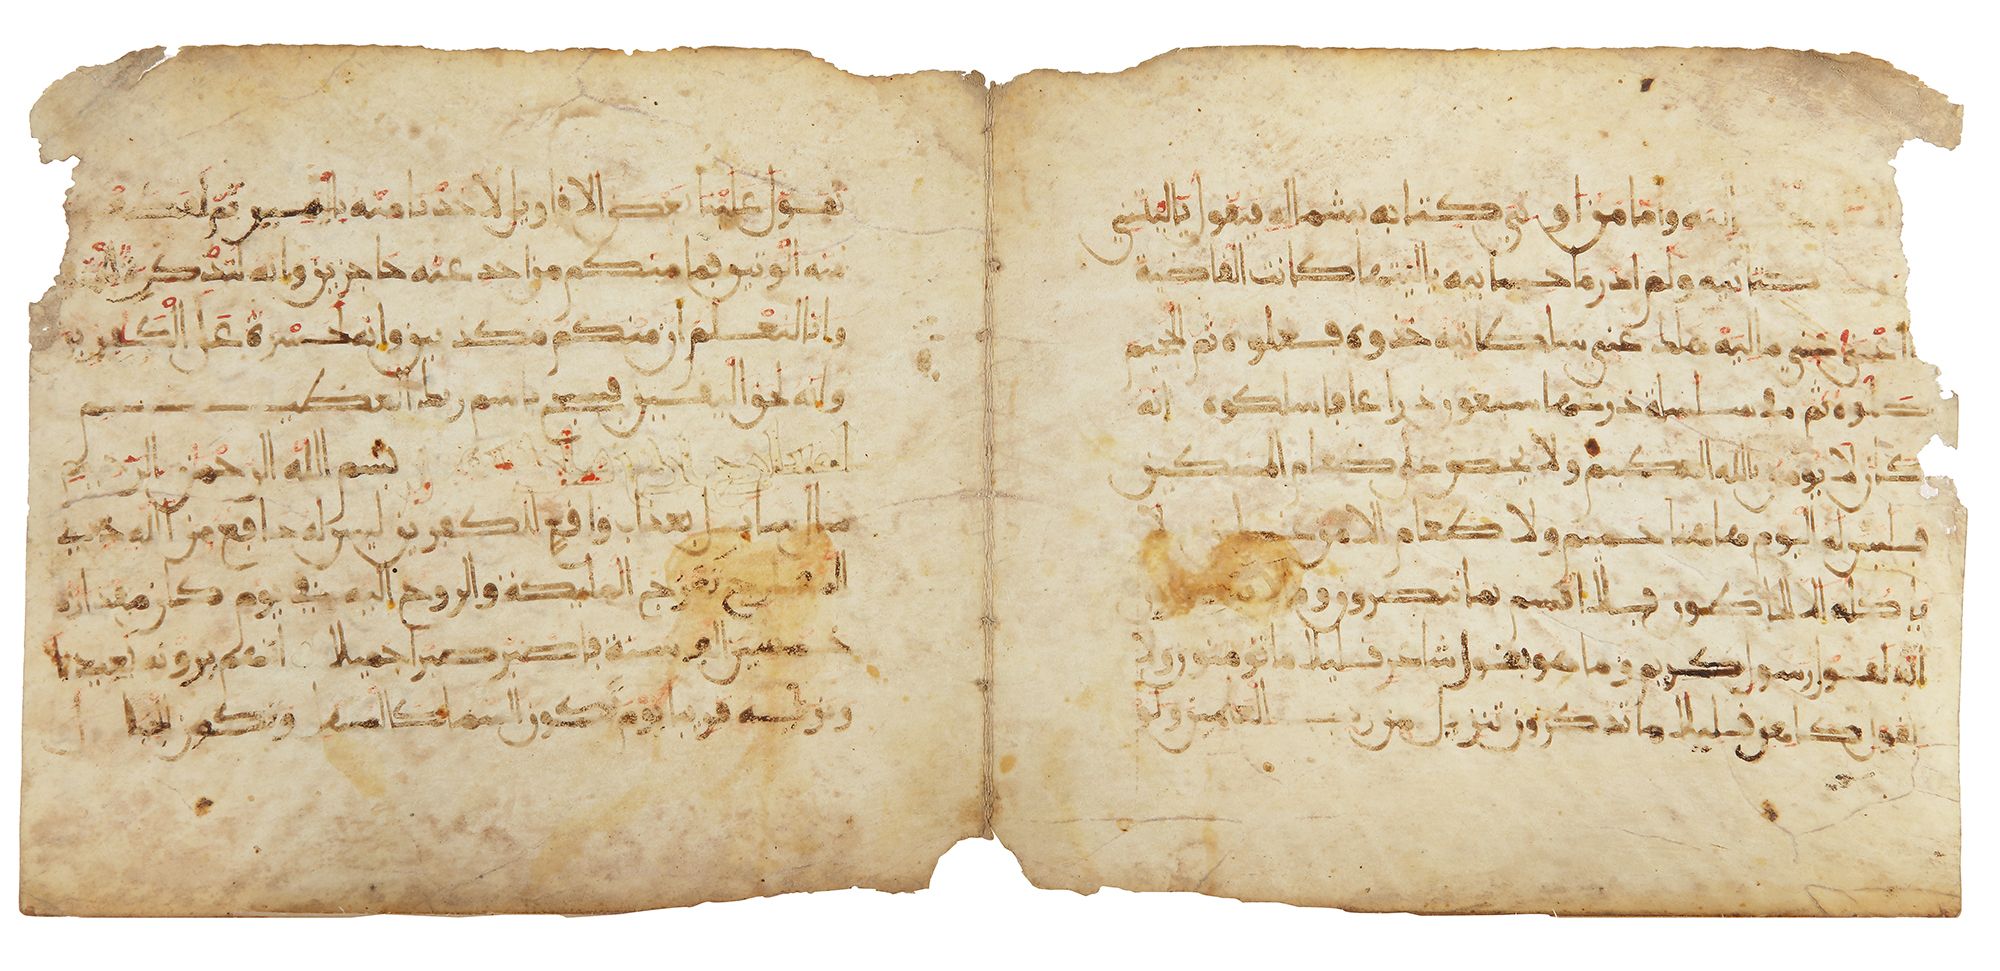 واما من اوتي كتابه بشماله فيقول ياليتني
كتابيه ولم ادر ما حسابيه ياليتها كانت القاضية
اغنى عني ماليه هلك عني سلطانيه خذوه فغلوه ثم الجحيم
صلوه ثم في سلسلة ذرعها سبعون ذراعا فاسلكوه انه
كان لا يومن بالله العظيم ولا يحض على طعام المسكين
فليس له اليوم هاهنا حميم ولا طعام الا من غسلين لا
ياكله الا الخاطون فلا اقسم بما تبصرون وما لا تبصرون
انه لقول رسول كريم وما هو بقول شاعر قليلا ما تومنون ولا
بقول كاهن قليلا ما تذكرون تنزيل من رب العلمين ولو
تقول علينا بعض الاقاويل لاخذنا منه باليمين ثم لقطعنا
منه الوتين فما منكم من احد عنه حاجزين وانه لتذكرة
وانا لنعلم ان منكم مكذبين وانه لحسرة على الكفرين
وانه لحق اليقين فسبح باسم ربك العظيم
بسم الله الرحمن الرحيم
سال سايل بعذاب واقع للكفرين ليس له دافع من الله ذي
المعارج تعرج المليكة والروح اليه في يوم كان مقداره
خمسين الف سنة فاصبر صبرا جميلا انهم يرونه بعيدا
ونريه قريبا يوم تكون السما كالمهل وتكون الجبال